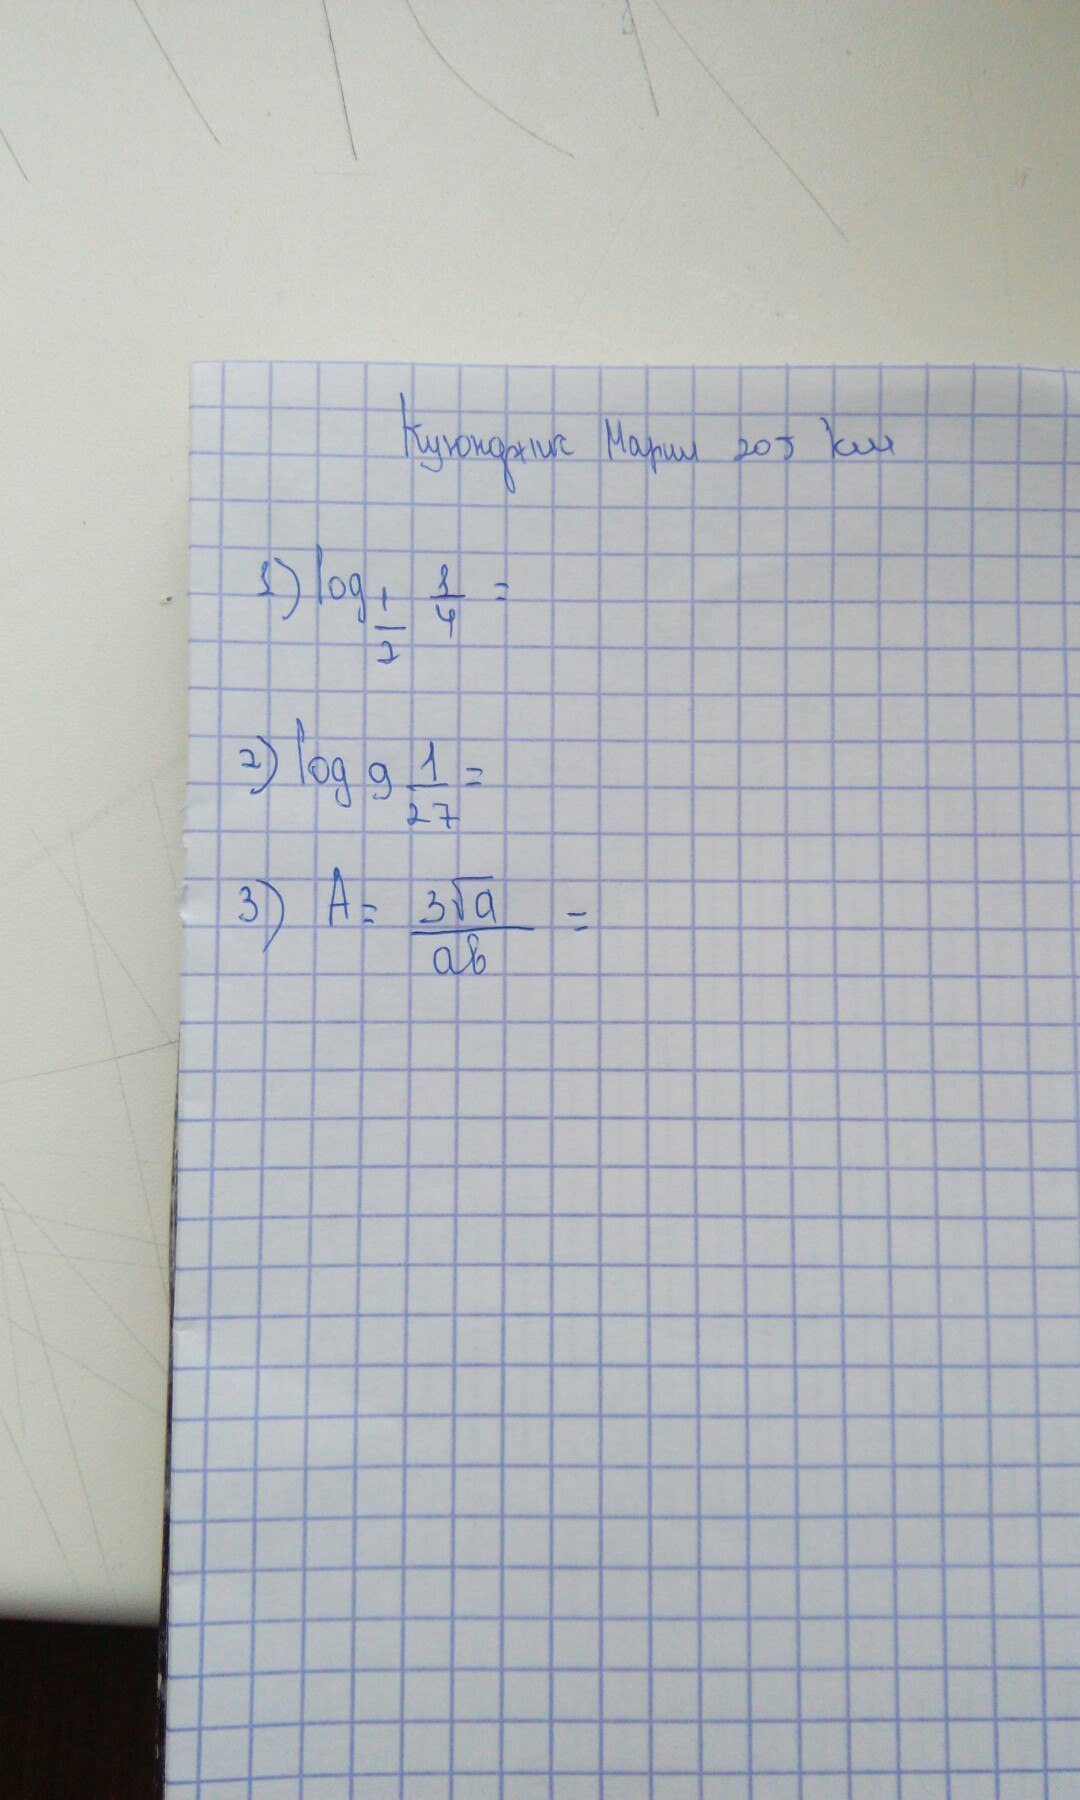 Куюнджик Марии 205 км
1) log 1/2 1/4 =
2) log 9 1/27 =
3) A = 3√a / ab =